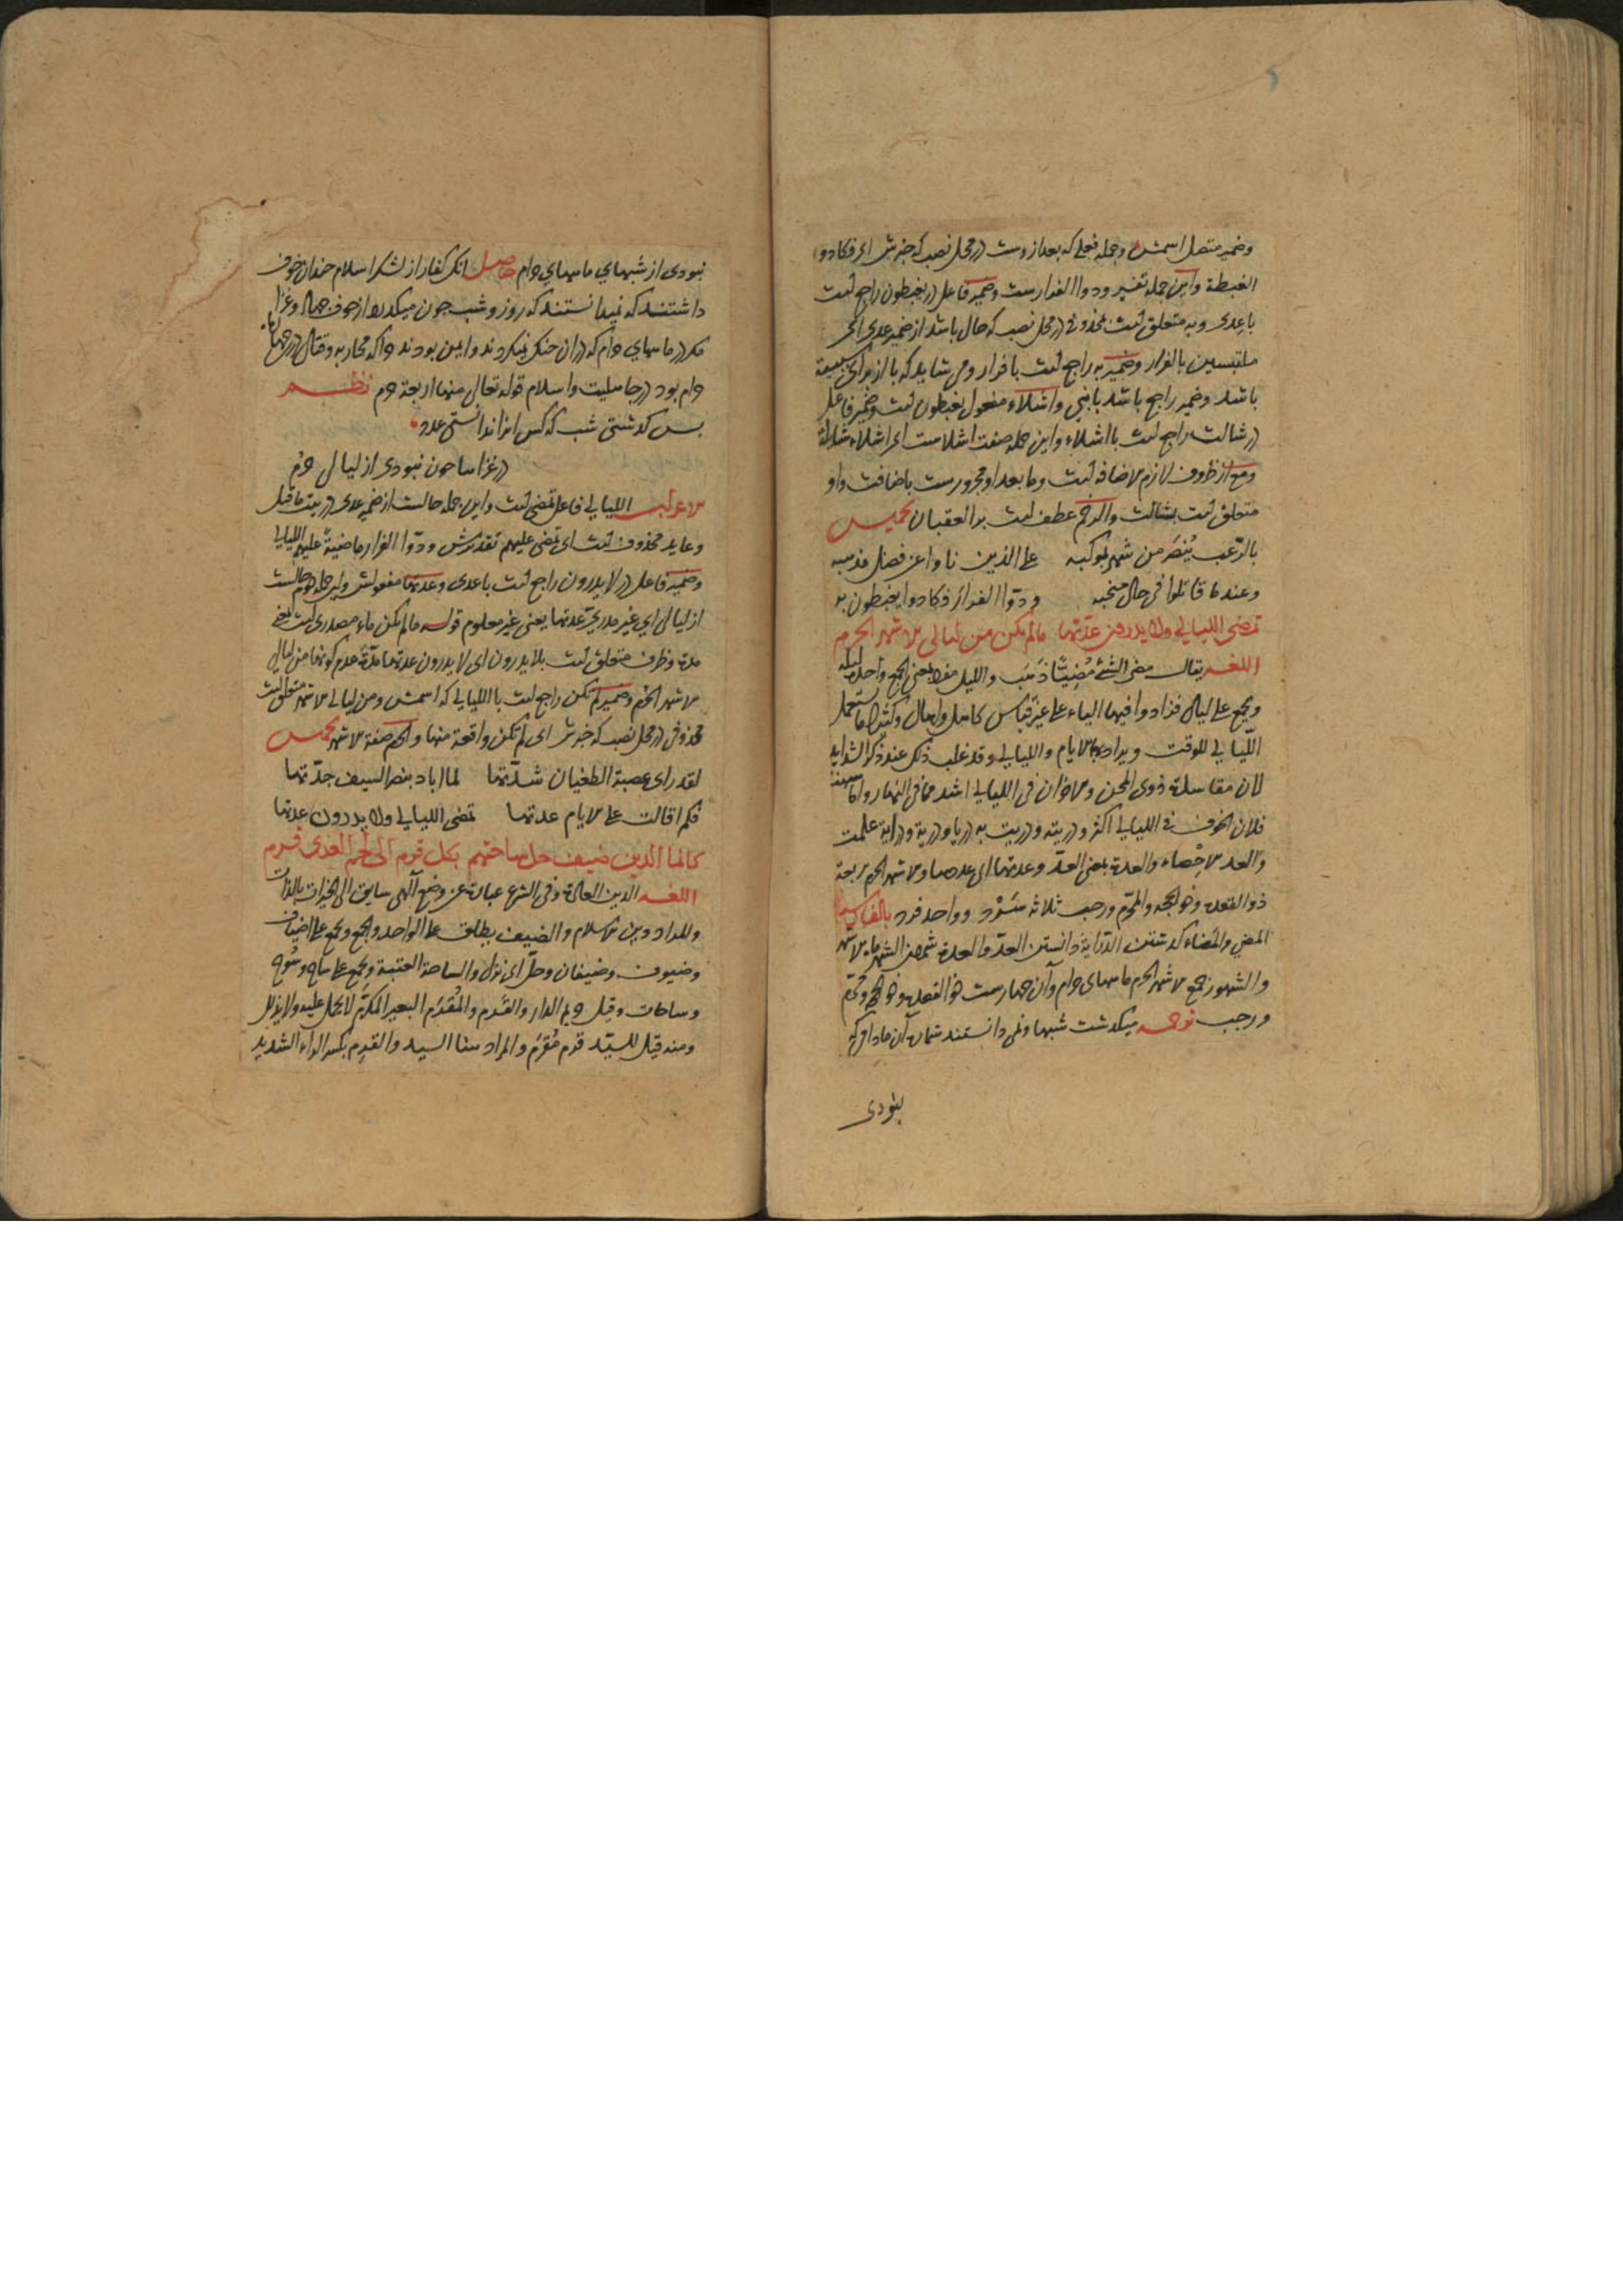 وضمیر متصل اسمش وجمله فعلی که بعد ازوست در محل نصب که خبرش ای فکادوا
الغبطة واین جمله تفسیر ودوا الفرارست وضمیر فاعل در یغبطون راجع است
باعدی وبه متعلق است بمحذوفی در محل نصب که حال باشد از ضمیر عدی ای
ملتبسین بالفرار وضمیر به راجع است بافرار ومی شاید که با از برای سببیة
باشد وضمیر راجع باشد بانبی واشلاء مفعول یغبطون است وضمیر فاعل
در شالت راجع است بااشلاء واین جمله صفت اشلاست ای اشلاء شائلة
ومع از ظروف لازم الاضافه است وما بعد او مجرورست باضافت واو
متعلق است بشالت والرخم عطف است بر العقبان تخمیس
بالرّعب یُنصَر من شهر لموکبه علی الذین ناوا عن فضل مذهبه
وعندما قاتلوا فی حال منحبه ودّوا الفرار فکادوا یغبطون به
تمضی اللیالی ولا یدرون عدّتها مالم تکن من لیالی الاشهر الحرم
اللغه یقال مضی الشئ مُضِیّا ذَهَبَ واللیل مفرد بمعنی الجمع واحده لیلة
ویجمع علی لیال فزادوا فیها الیاء علی غیر قیاس کاهل واهال وکثیرا ما یستعمل
اللّیالی للوقت ویراد بها الایام واللیالی وقد غلب ذلک عند ذکر الشداید
لان مقاساة ذوی المحن والاحزان فی اللیالی اشد مما فی النهار واما
فلان الخوف فی اللیالی اکثر ودریته ودریت به دریا ودریة ودرایة علمت
والعد الاحصاء والعدة بمعنی العدّ وعدتها ای عددها والاشهر الحرم اربعة
ذو القعدة وذو الحجه والمحرّم ورجب ثلاثة سَرْد وواحد فرد بالفارسیه
المضی والمضاء کدشتن الدّرایة دانستن العدّ والعدة شمردن الشهر ماه الاشهر
والشهور جمع الاشهر الحرم ماههای حرام وآن چهارست ذو القعدة وذو الحجة ومحرّم
ورجب ترجمه میکدشت شبها ونمی دانستند شمار آن مادام که
نبودی
نبودی از شبهای ماههای حرام حاصل انک کفار از لشکر اسلام چندان خوف
داشتند که نمیدانستند که روز وشب چون میکذرد از خوف جهاد وغزا
مکر در ماههای حرام که در ان جنک نمیکردند وایمن بودند چراکه محاربه وقتال در چهار ماه
حرام بود در جاهلیت واسلام قوله تعالی منها اربعة حرم نظم
بس کدشتی شب که کس انرا ندانستی عدد
در غزاها چون نبودی از لیال حرم
الاعراب اللیالی فاعل تمضی است واین جمله حالست از ضمیر عدی در بیت ماقبل
وعاید محذوف است ای تمضی علیهم تقدیرش ودّوا الفرار ماضیةً علیهم اللیالی
وضمیر فاعل در لا یدرون راجع است باعدی وعدتها مفعولش واین جمله هم حالست
از لیالی ای غیر مدریّ عدتها یعنی غیر معلوم قوله مالم تکن ماء مصدری است بمعنی
مدة وظرف متعلق است بلایدرون ای لا یدرون عدتها مدّة عدم کونها من لیالی
الاشهر الحرم وضمیر تکن راجع است با اللیالی که اسمش ومن لیالی الاشهر متعلق است
بمحذوفی در محل نصب که خبرش ای لم تکن واقعة منها والحرم صفة الاشهر تخمیس
لقد رای عصبة الطغیان شدّتها لما اباد بنصر السیف جدّتها
فکم اقالت علی الایام عدتها تمضی اللیالی ولا یدرون عدتها
کانما الدین ضیف حل ساحتهم بکل قرم الی لحم العدی قرم
اللغه الدین العادة وفی الشرع عبارة عن وضع آلهی سایق الی الخیرات بالذات
والمراد دین الاسلام والضیف یطلق علی الواحد والجمع ویجمع علی اضیاف
وضیوف وضیفان وحلّ ای نزل والساحة العتبة ویجمع علی ساح وسُوح
وساحات وقیل حریم الدار والقَرم والمُقْرَم البعیر المکرّم لا یحمل علیه ولا یذلل
ومنه قیل للسیّد قرم مُقْرَم والمراد هنا السید والقرم بکسر الراء الشدید